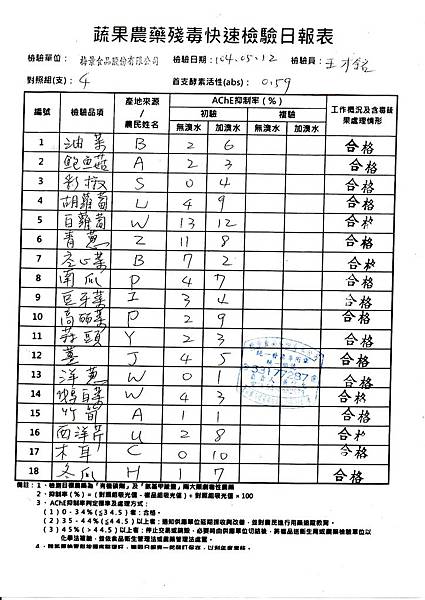 蔬果農藥殘毒快速檢驗日報表
檢驗單位： 食品股份有限公司 檢驗日期：104.05.12 檢驗員：王
對照組(支)： 4 首支酵素活性(abs)： 0.59
編號 檢驗品項 產地來源/農民姓名 AChE抑制率(%) 工作概況及含毒蔬果處理情形
初驗 複驗
無溴水 加溴水 無溴水 加溴水
1 油菜 B 2 6 合格
2 鮑魚菇 A 2 3 合格
3 彩椒 S 0 4 合格
4 胡蘿蔔 L 4 9 合格
5 白蘿蔔 W 13 12 合格
6 青蔥 Z 11 8 合格
7 空心菜 B 7 2 合格
8 南瓜 P 4 7 合格
9 豆芽菜 I 3 4 合格
10 高麗菜 P 2 9 合格
11 蒜頭 Y 2 3 合格
12 薑 J 4 5 合格
13 洋蔥 W 0 1 合格
14 白菜 W 4 3 合格
15 竹筍 A 1 1 合格
16 西洋芹 U 2 8 合格
17 木耳 C 0 10 合格
18 冬瓜 H 1 7 合格
備註：1、檢驗日報農藥為「有機磷劑」及「氨基甲酸鹽」兩大類劇毒性農藥
2、抑制率(%)=(對照組吸光值-樣品組吸光值)÷對照組吸光值×100
3、AChE抑制率判定標準及處理方式：
(1) 0-34%(≦34.5)者：合格。
(2) 35-44%(≦44.5)以上者：通知供應單位延期採收與改善，並對農民進行用藥追蹤教育。
(3) 45%(>44.5)以上者：停止交易或銷毀，必要時由供應單位切結後，將樣品送衛生局或農藥檢驗單位以
化學法複驗，並依食品衛生管理法或農藥管理法處置。